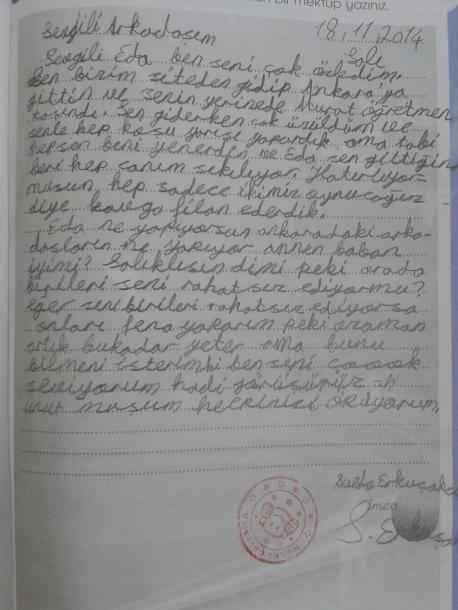 bir mektup yazınız.
Sevgili Arkadaşım 18.11.2014
Salı
Sevgili Eda ben seni çok özledim.
Sen bizim siteden gidip Ankara'ya
gittin ve senin yerinede Murat öğretmen
taşındı. Sen giderken çok üzüldüm ve
senle hep koşu yarışı yapardık ama tabi
hepsen beni yenerdin ve Eda sen gittiğind
beri hep canım sıkılıyor. Hatırlıyor-
musun, hep sadece ikimiz oynucağız
diye kavga filan ederdik.
Eda ne yapıyorsun ankaradaki arka-
daşların ne yapıyor annen baban
iyimi? Salıklısın dimi peki arada
birileri seni rahatsız ediyormu?
eğer seni birileri rahatsız ediyorsa
onları fena yaparım peki ozaman
artık bukadar yeter ama bunu
bilmeni isterimbi ben seni çooook
seviyorum hadi görüşürüz ah
unut muşum hepinizi öpüyorum,
İmza